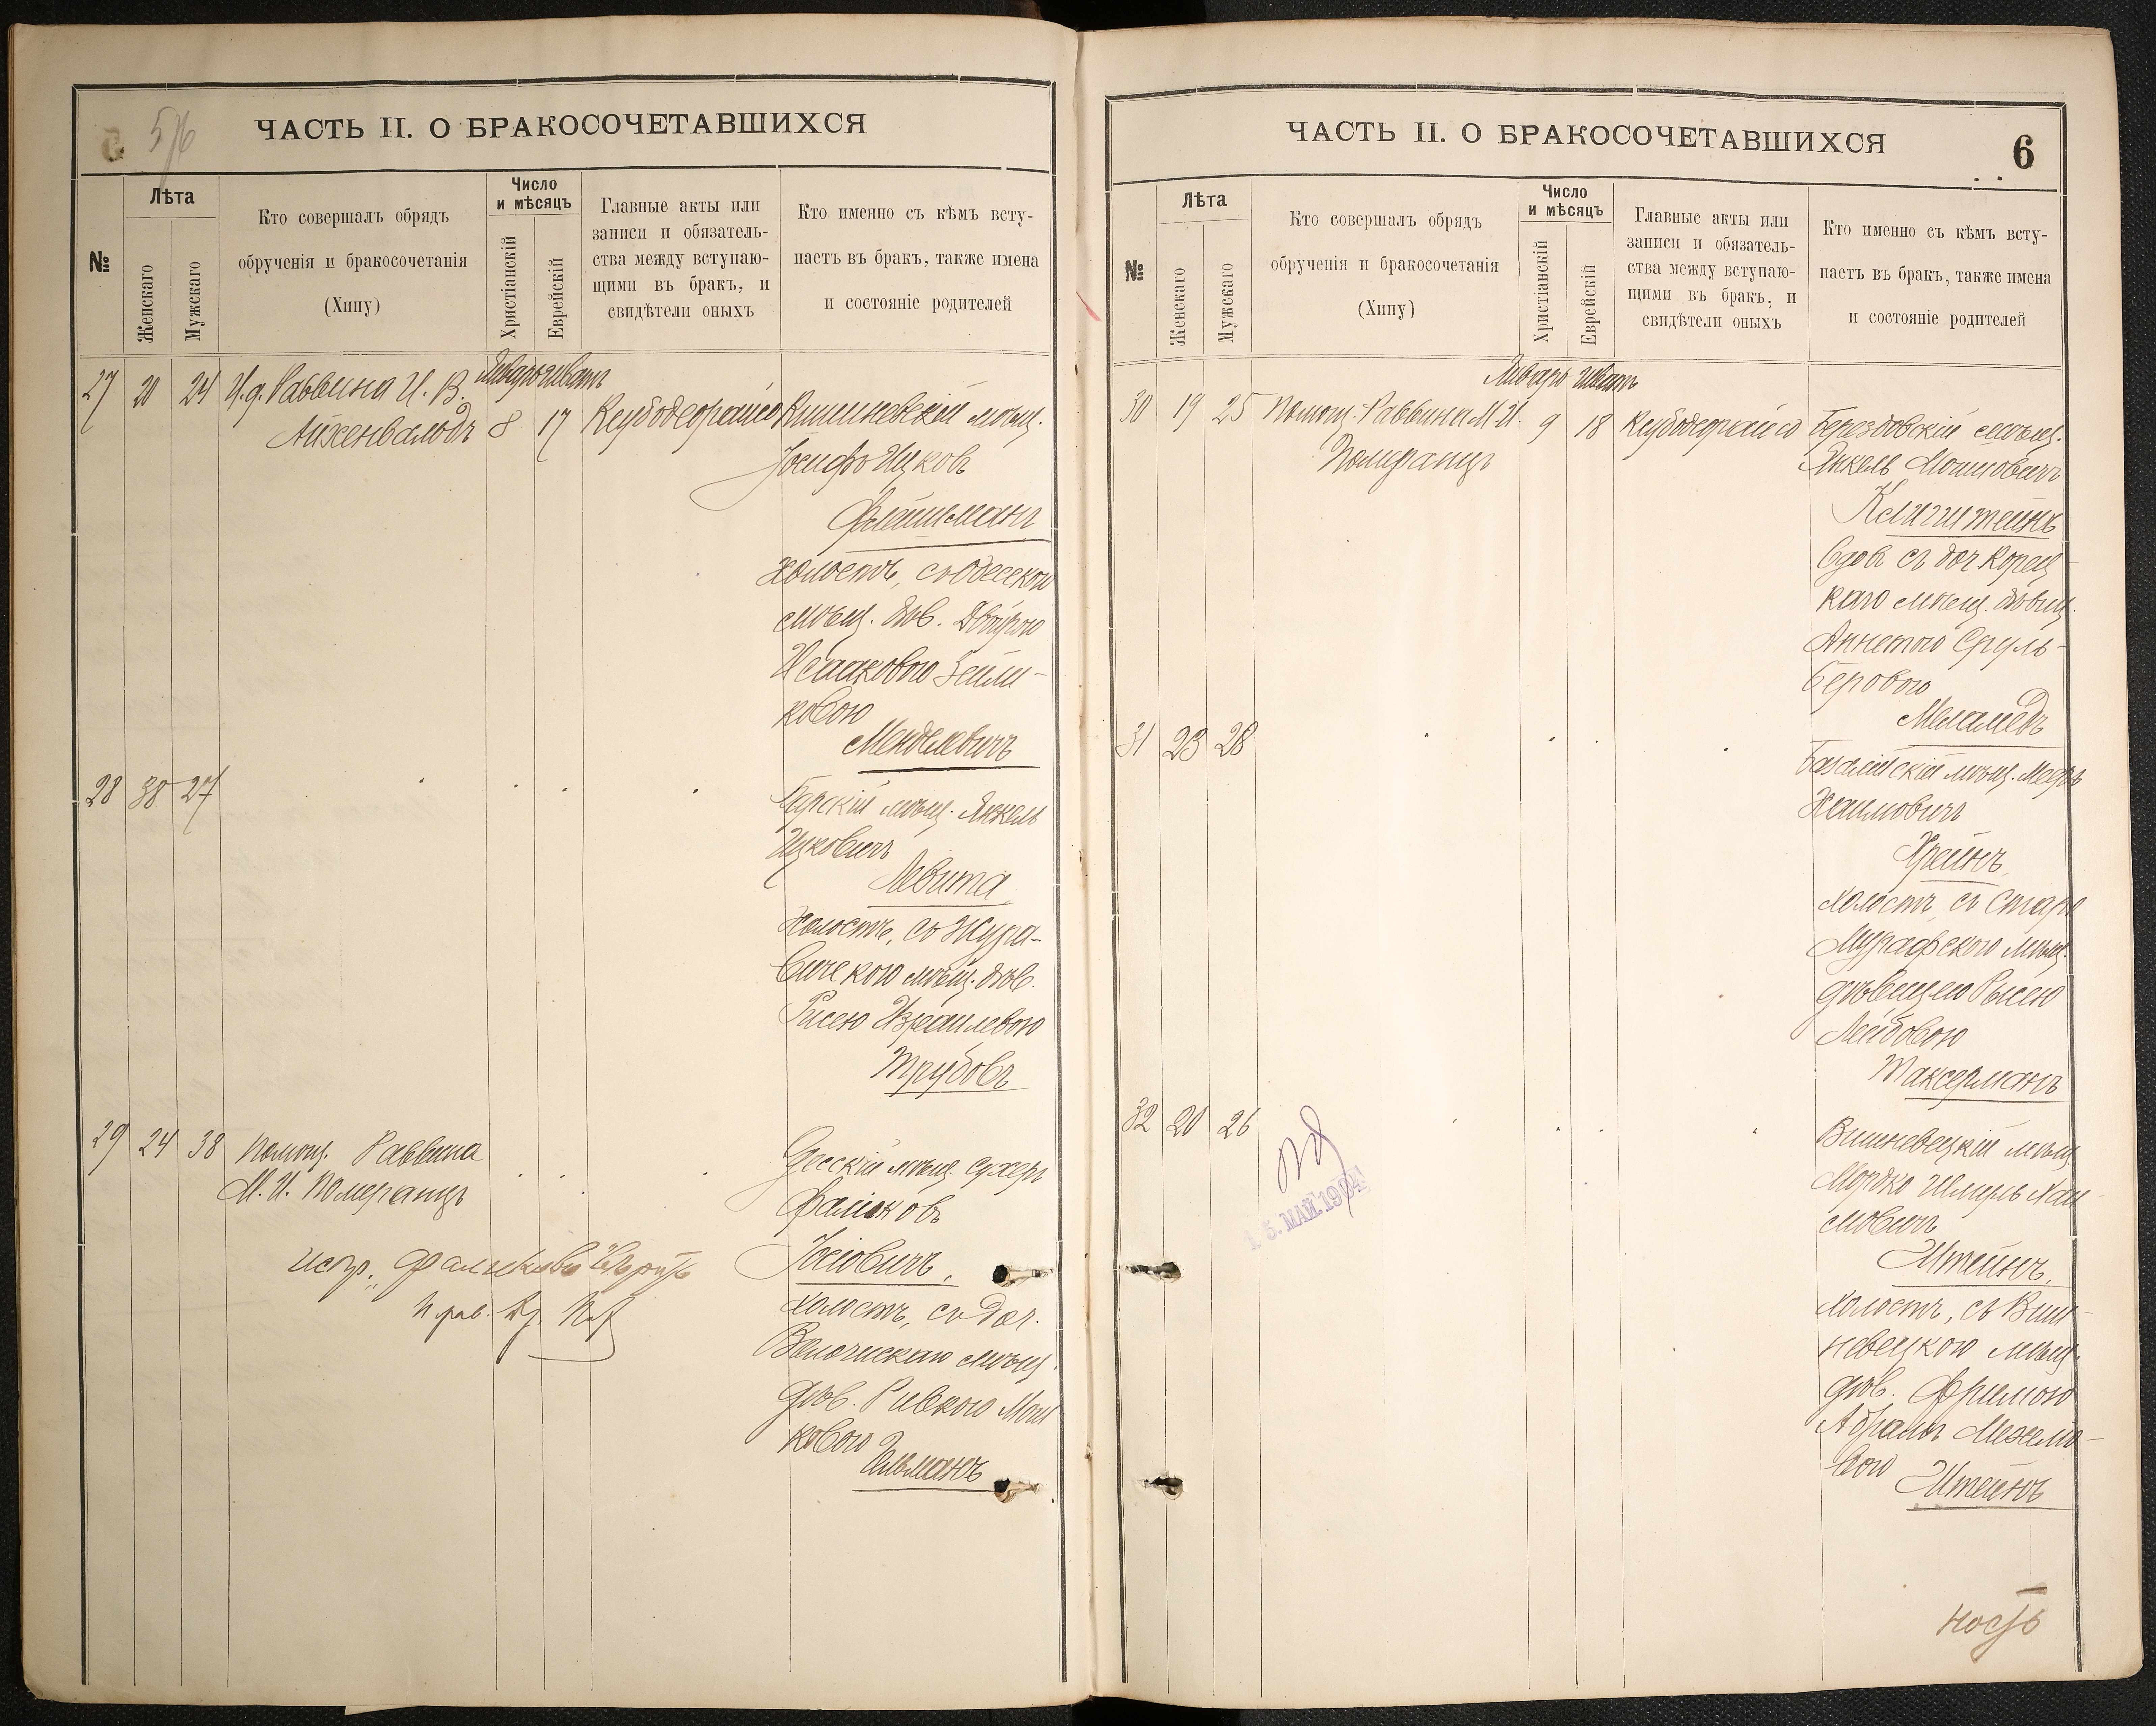 5/6
ЧАСТЬ II. О БРАКОСОЧЕТАВШИХСЯ
№
Лѣта
Женскаго
Мужскаго
Кто совершалъ обрядъ
обрученія и бракосочетанія
(Хипу)
Число
и мѣсяцъ
Христіанскій
Еврейскій
Главные акты или
записи и обязатель-
ства между вступаю-
щими въ бракъ, и
свидѣтели оныхъ
Кто именно съ кѣмъ всту-
паетъ въ бракъ, также имена
и состояніе родителей
Январь Шватъ
27 20 24 И.д. Раввина И. В.
Айженвальдъ 8 17
Кишиневскій мѣщ.
Іосифъ Ицковъ
Флейшманъ
холостъ, съ Одесскою
мѣщ. дѣв. Двойрою
Исааковою Зейли-
ковою
Менделевичъ
28 30 27
Барскій мѣщ. Янкель
Ицковичъ
Левита
холостъ, съ Жура-
вичскою мѣщ. дѣв.
Рисею Израилевою
Трубовъ
29 24 38 Помощ. Раввина
М. И. Померанцъ
Одесскій мѣщ. Сухеръ
Фальковъ
Іосіовичъ,
холостъ, съ доч.
Волочискаго мѣщ.
дѣв. Ривкою Мош-
ковою
Гельманъ
испр. „Фальковъ" вѣрить
ЧАСТЬ II. О БРАКОСОЧЕТАВШИХСЯ
6
№
Лѣта
Женскаго
Мужскаго
Кто совершалъ обрядъ
обрученія и бракосочетанія
(Хипу)
Число
и мѣсяцъ
Христіанскій
Еврейскій
Главные акты или
записи и обязатель-
ства между вступаю-
щими въ бракъ, и
свидѣтели оныхъ
Кто именно съ кѣмъ всту-
паетъ въ бракъ, также имена
и состояніе родителей
Январь Шватъ
30 19 25 Помощ. Раввина М. И.
Померанцъ 9 18
Берездовскій мѣщ.
Янкель Мошковичъ
Клигштейнъ
вдов. съ доч. Корец-
каго мѣщ. дѣвиц.
Аннетою Сруль-
Беровою
Меламедъ
31 23 28
Базалійскій мѣщ. Мееръ
Хаимовичъ
Крейнъ,
холостъ, съ Старо
Мурафскою мѣщ.
дѣвицею Рысею
Лейбовою
Таксерманъ
32 20 26
15. МАЙ. 1904
Вишневецкій мѣщ.
Мордко Шмуль Хаи-
мовичъ
Штейнъ,
холостъ, съ Виш-
невецкою мѣщ.
дѣв. Фримою
Абрамъ Мехело-
вою
Штейнъ
ность